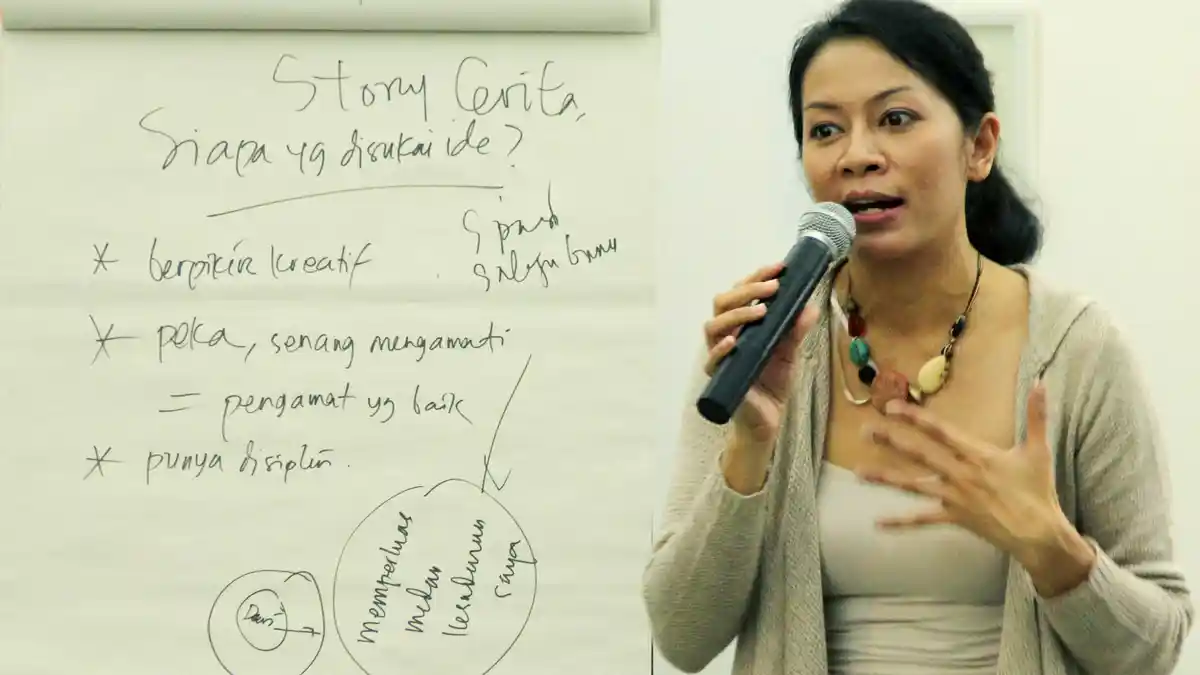 Story Cerita,
Siapa yg disukai ide?
* berpikir kreatif
* peka, senang mengamati
= pengamat yg baik
* punya disiplin.
memperluas
medan
kesadaran
saya